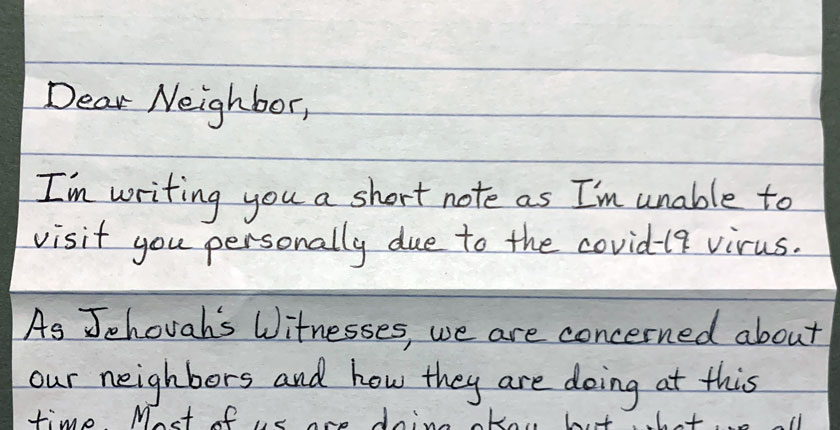 Dear Neighbor,
I'm writing you a short note as I'm unable to
visit you personally due to the covid-19 virus.
As Jehovah's Witnesses, we are concerned about
our neighbors and how they are doing at this
time. Most of us are doing okay but what we all